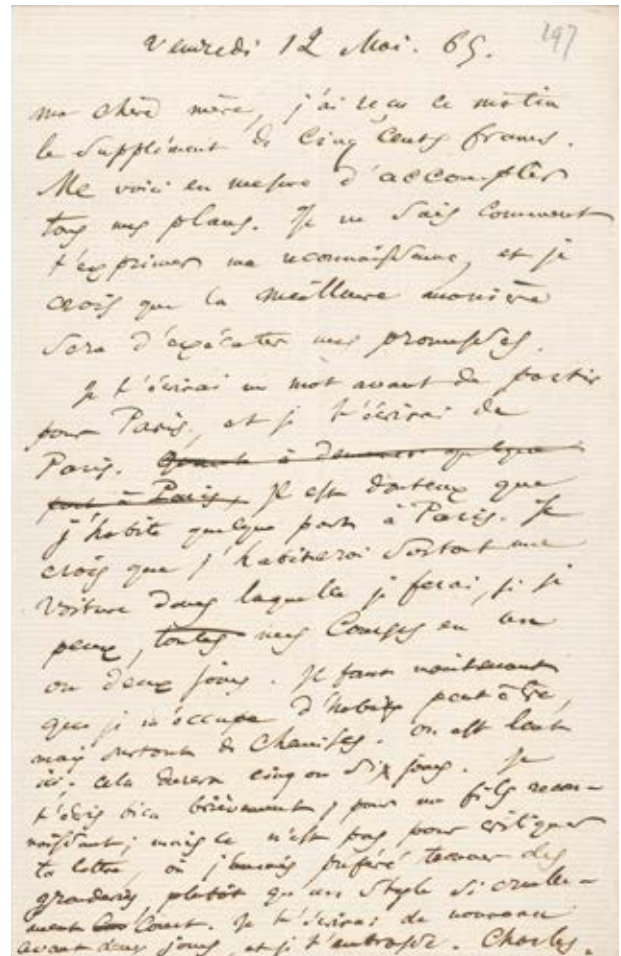 Vendredi 12 Mai. 65.
297
ma chère mère, j'ai reçu ce matin
le supplément de cinq cents francs.
Me voici en mesure d'accomplir
tous mes plans. Je ne sais comment
t'exprimer ma reconnaissance, et je
crois que la meilleure manière
sera d'exécuter mes promesses.
Je t'écrirai un mot avant de partir
pour Paris, et je t'écrirai de
Paris. Quant à demeurer quelque
part à Paris, Il est douteux que
j'habite quelque part à Paris. Je
crois que j'habiterai surtout une
voiture dans laquelle je ferai, si je
peux, toutes mes courses en un
ou deux jours. Il faut maintenant
que je m'occupe d'habits peut-être,
mais surtout de chemises. On est lent
ici; cela durera cinq ou six jours. Je
t'écris bien brièvement, pour un fils recon-
naissant; mais ce n'est pas pour critiquer
ta lettre, où j'aurais préféré trouver des
gronderies, plutôt qu'un style si cruelle-
ment court. Je t'écrirai de nouveau
avant deux jours, et je t'embrasse. Charles.